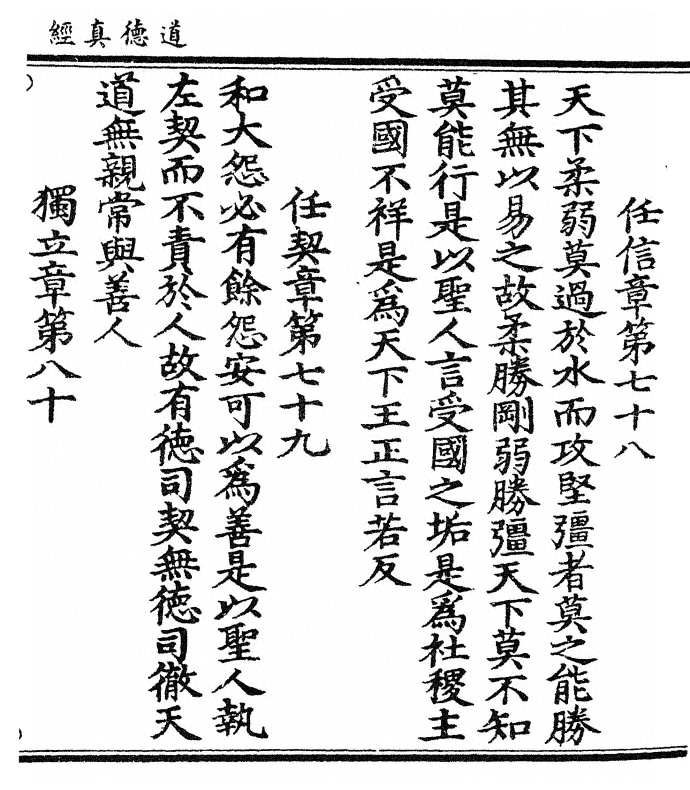 道德真經
任信章第七十八
天下柔弱莫過於水而攻堅彊者莫之能勝
其無以易之故柔勝剛弱勝彊天下莫不知
莫能行是以聖人言受國之垢是為社稷主
受國不祥是為天下王正言若反
任契章第七十九
和大怨必有餘怨安可以為善是以聖人執
左契而不責於人故有德司契無德司徹天
道無親常與善人
獨立章第八十